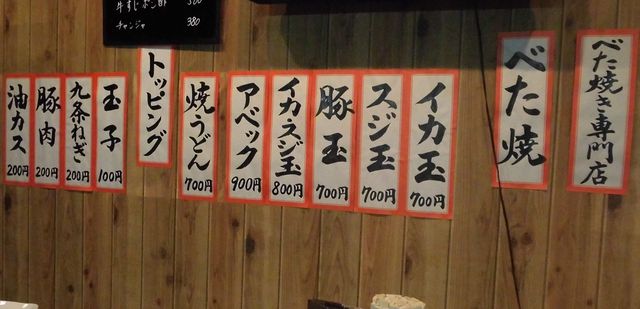 べた焼き専門店
べた焼
イカ玉
700円
スジ玉
700円
豚玉
700円
イカ・スジ玉
800円
アベック
900円
焼うどん
700円
トッピング
玉子
100円
九条ねぎ
200円
豚肉
200円
油カス
200円
牛すじポン酢
チャンジャ
380